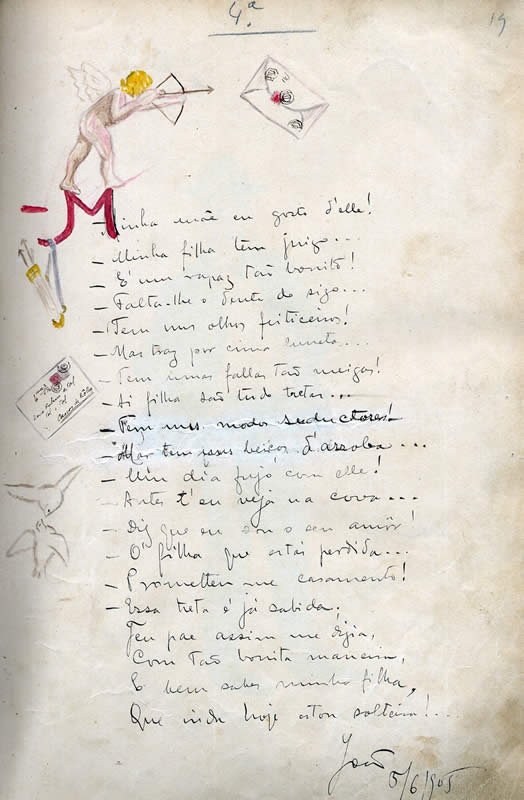 4.ª
19
- Minha mãe eu gosto d'elle!
- Minha filha tem juizo...
- É um rapaz tão bonito!
- Falta-lhe o dente do sizo...
- Tem uns olhos feiticeiros!
- Mas traz por cima luneta...
- Tem umas fallas tão meigas!
- Ai filha são tudo tretas...
- Tem uns modos seductores!
- Mas tem esses beiços d'assobra...
- Um dia fujo com elle!
- Antes t'eu veja na cova...
- Diz que eu sou o seu amôr!
- Ó filha que estás perdida...
- Prometteu me casamento!
- Essa treta é já sabida.
Teu pae assim me dizia,
Com tão bonita maneira,
E bem sabes minha filha,
Que inda hoje estou solteira!...
João
5/6/905